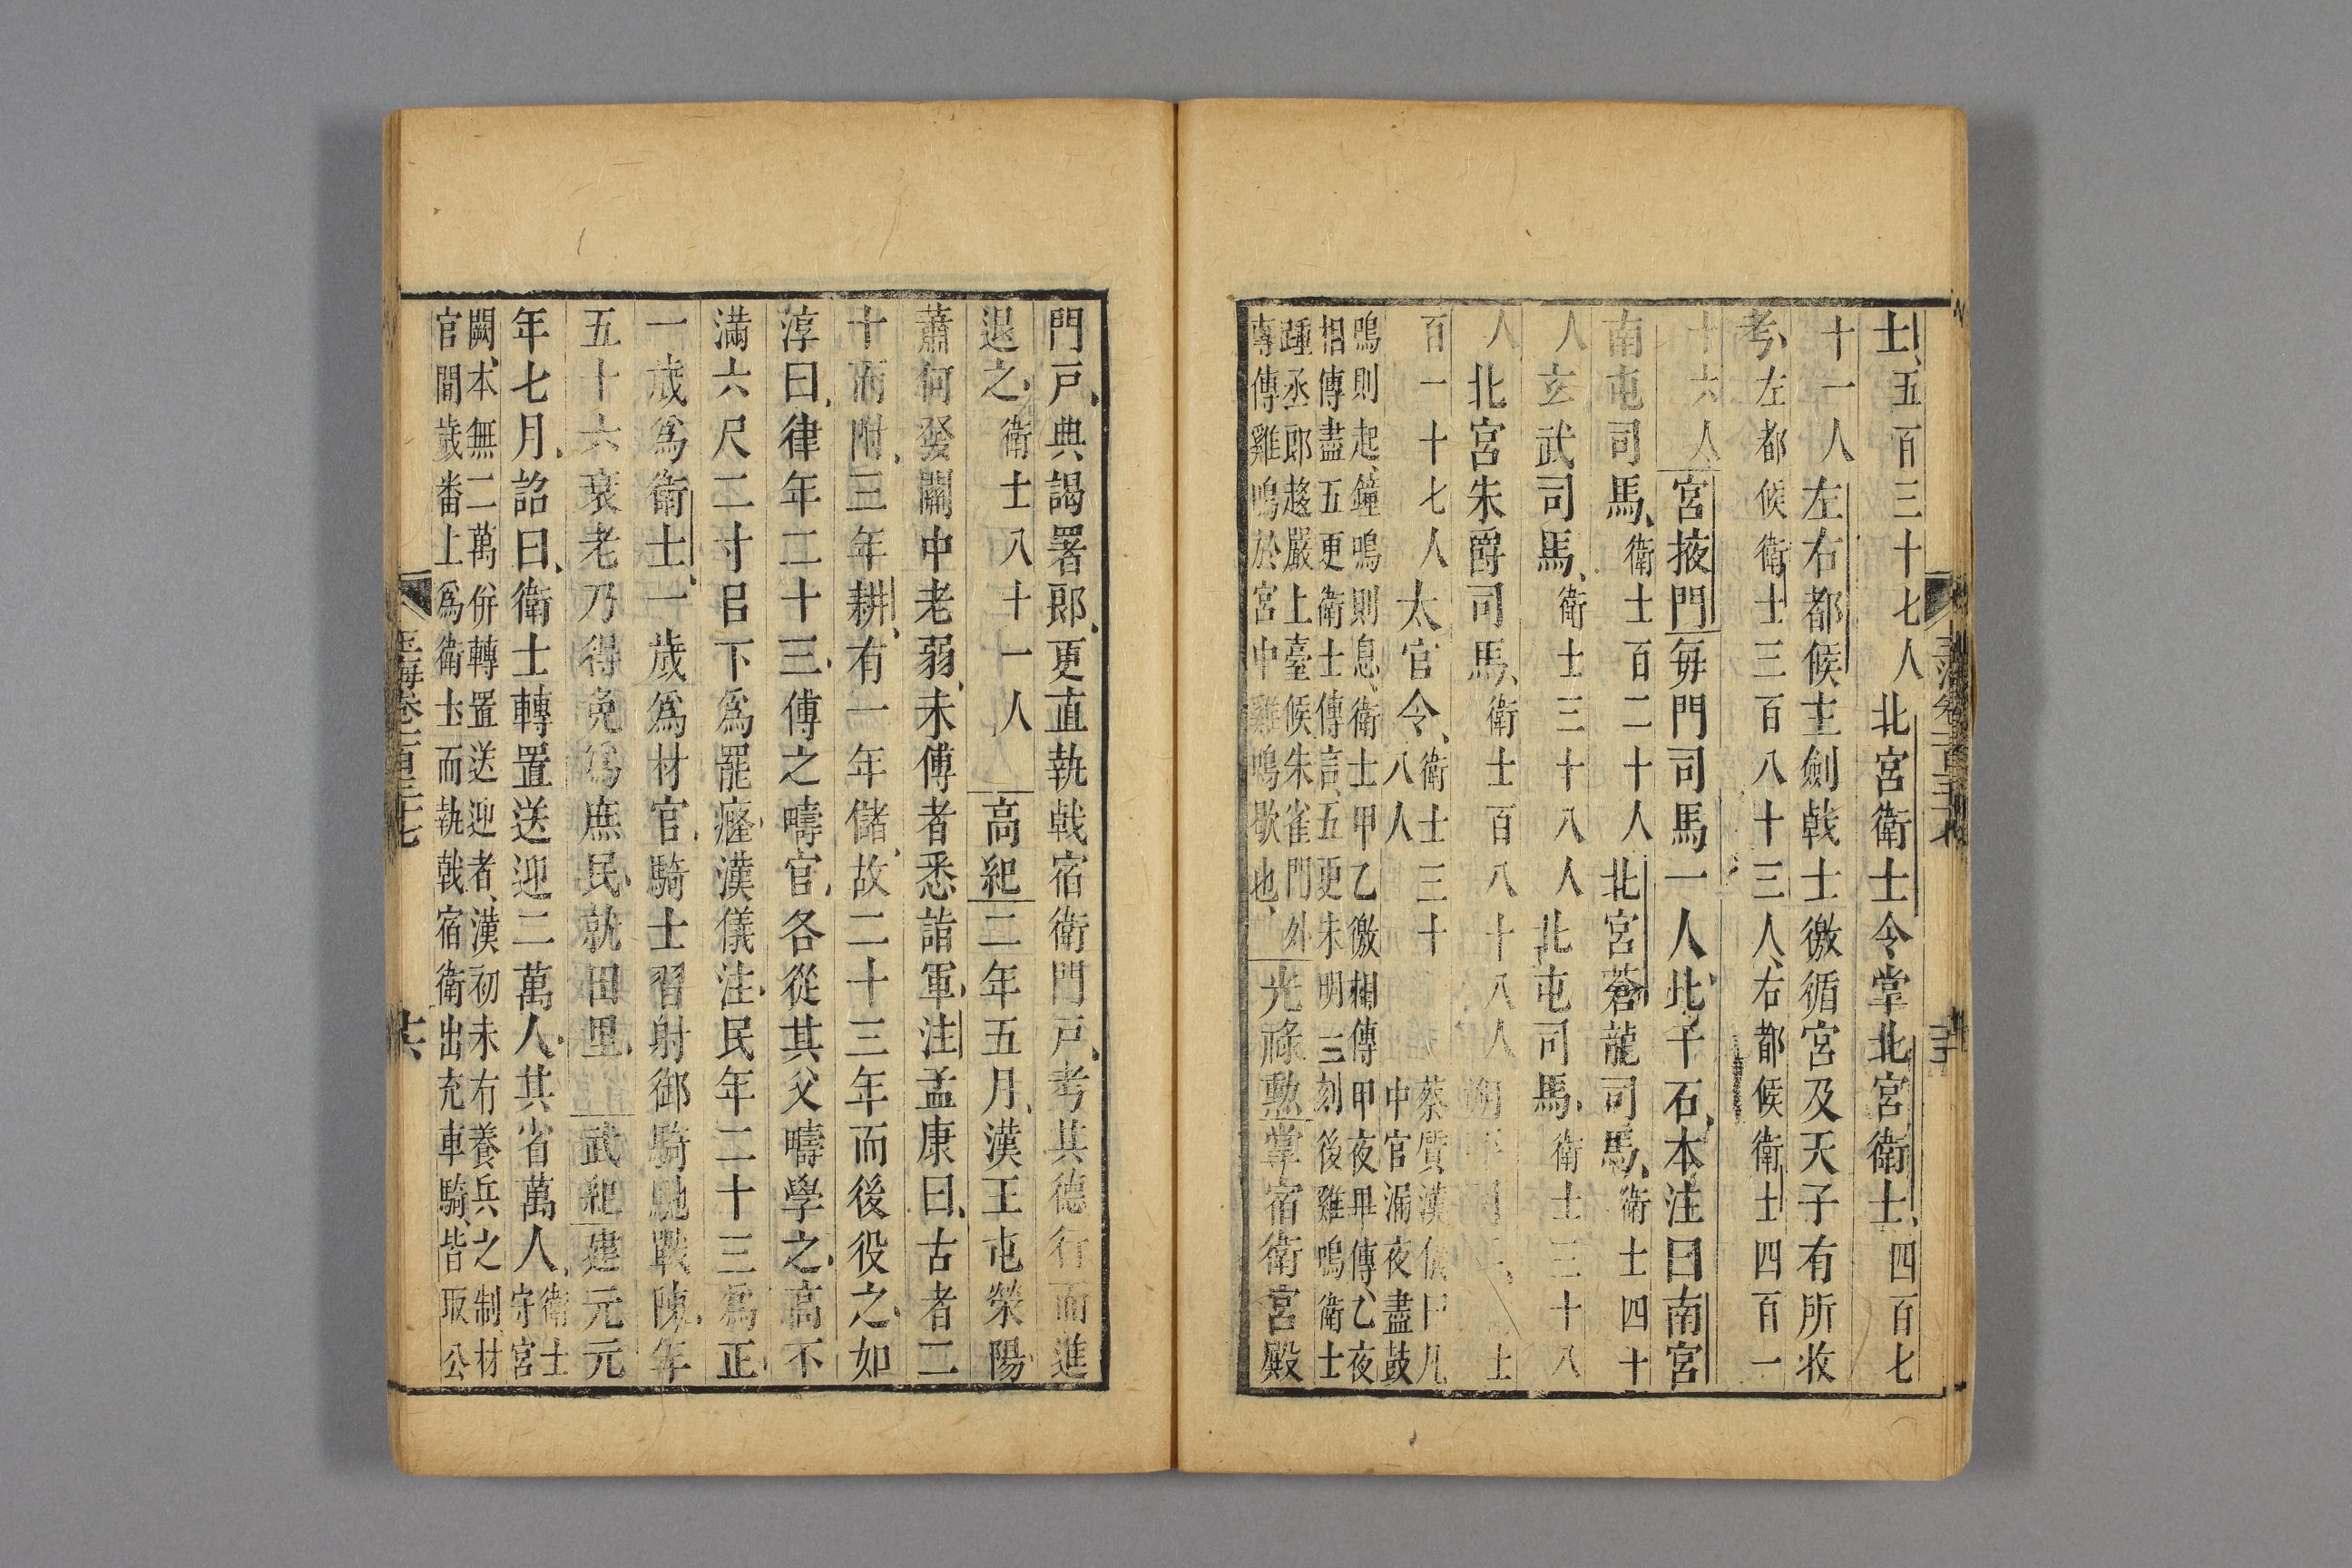 士五百三十七人北宮衛士令掌北宮衛士四百七
十一人左右都候主劍戟士徼循宮及天子有所收
考左都候衛士三百八十三人右都候衛士四百一
十六人宮掖門每門司馬一人比千石本注曰南宮
南屯司馬衛士百二十人北宮蒼龍司馬衛士四十
人玄武司馬衛士三十八人北屯司馬衛士三十八
人北宮朱爵司馬衛士百八十八人朔平司馬士
百一十七人太官令衛士三十
八人
蔡質漢儀曰凡
中官漏夜盡鼓
鳴則起鐘鳴則息衛士甲乙徼相傳甲夜畢傳乙夜
相傳盡五更衛士傳言五更未明三刻後雞鳴衛士
踵丞郎趨嚴上臺候朱雀門外
專傳雞鳴於宮中雞鳴歌也
光祿勲掌宿衛宮殿
門戸典謁署郎更直執戟宿衛門戸考其德行而進
退之衛士八十一人高紀二年五月漢王屯滎陽
蕭何發關中老弱未傅者悉詣軍注孟康曰古者二
十而附三年耕有一年儲故二十三年而後役之如
淳曰律年二十三傅之疇官各從其父疇學之高不
滿六尺二寸㠯下爲罷癃漢儀注民年二十三爲正
一歲爲衛士一歲爲材官騎士習射御騎馳戰陳年
五十六衰老乃得免爲庶民就田里武紀建元元
年七月詔曰衛士轉置送迎二萬人其省萬人衛士
守宮
闕本無二萬併轉置送迎者漢初未有養兵之制材
官間歲番上爲衛士而執戟宿衛出充車騎皆取公
玉海卷一百三十七